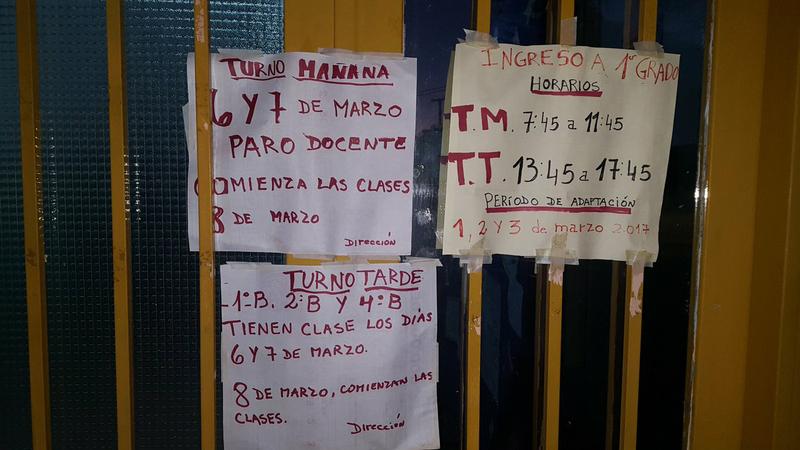 TURNO MAÑANA
6 Y 7 DE MARZO
PARO DOCENTE
COMIENZA LAS CLASES
8 DE MARZO
Dirección
INGRESO A 1º GRADO
HORARIOS
T.M. 7:45 a 11:45
T.T. 13:45 a 17:45
PERÍODO DE ADAPTACIÓN
1, 2 Y 3 de marzo 2.017
TURNO TARDE
1º B. 2º B Y 4º B
TIENEN CLASE LOS DÍAS
6 Y 7 DE MARZO.
8 DE MARZO, COMIENZAN LAS
CLASES.
Dirección